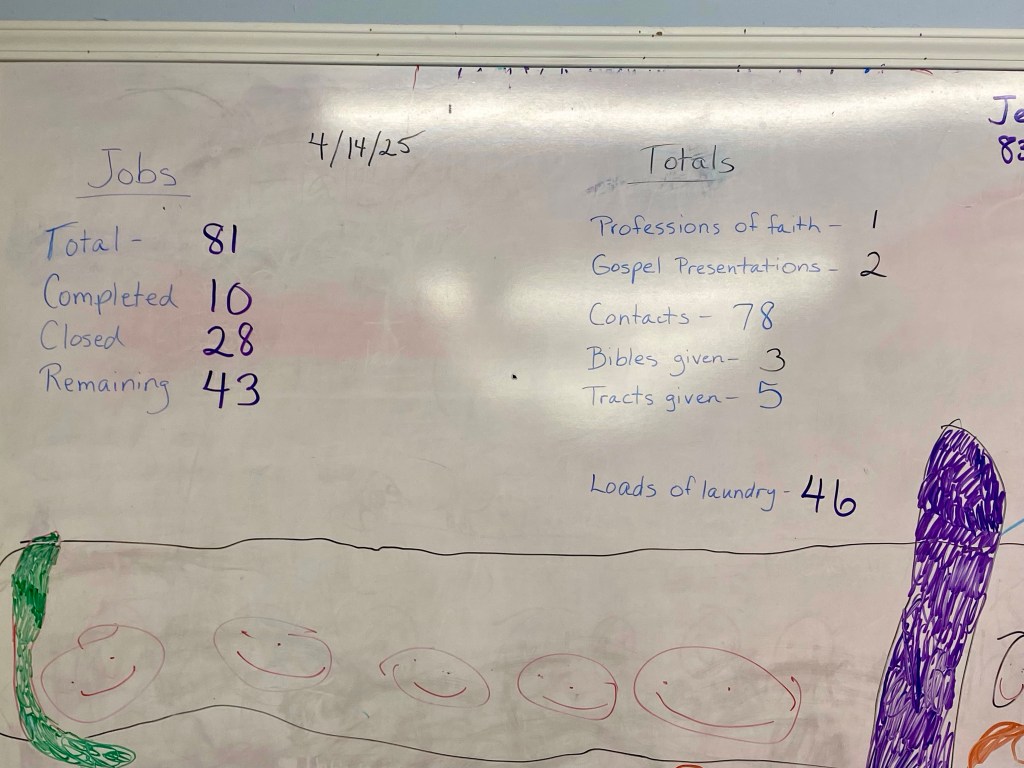 4/14/25
Jobs
Total - 81
Completed 10
Closed 28
Remaining 43
Totals
Professions of faith - 1
Gospel Presentations - 2
Contacts - 78
Bibles given - 3
Tracts given - 5
Loads of laundry - 46